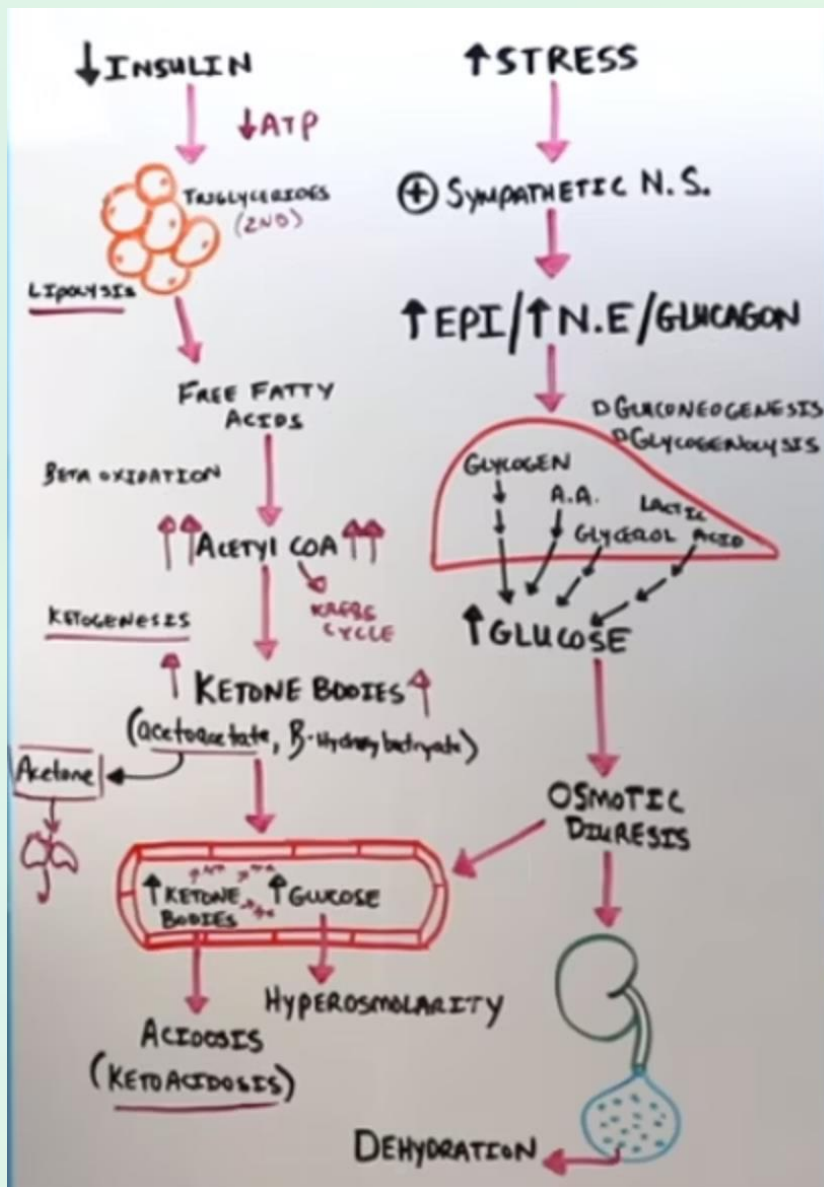 ↓INSULIN
↓ATP
TRIGLYCERIDES
(2ND)
LIPOLYSIS
FREE FATTY
ACIDS
BETA OXIDATION
↑↑ACETYL COA↑↑
KREBS
CYCLE
KETOGENESIS
↑KETONE BODIES↑
(acetoacetate, β-Hydroxybutryate)
Acetone
↑KETONE
BODIES
↑GLUCOSE
ACIDOSIS
(KETOACIDOSIS)
HYPEROSMOLARITY
↑STRESS
⊕ SYMPATHETIC N.S.
↑EPI/↑N.E/GLUCAGON
▷GLUCONEOGENESIS
▷GLYCOGENOLYSIS
GLYCOGEN
A.A.
GLYCEROL
LACTIC
ACID
↑GLUCOSE
OSMOTIC
DIURESIS
DEHYDRATION